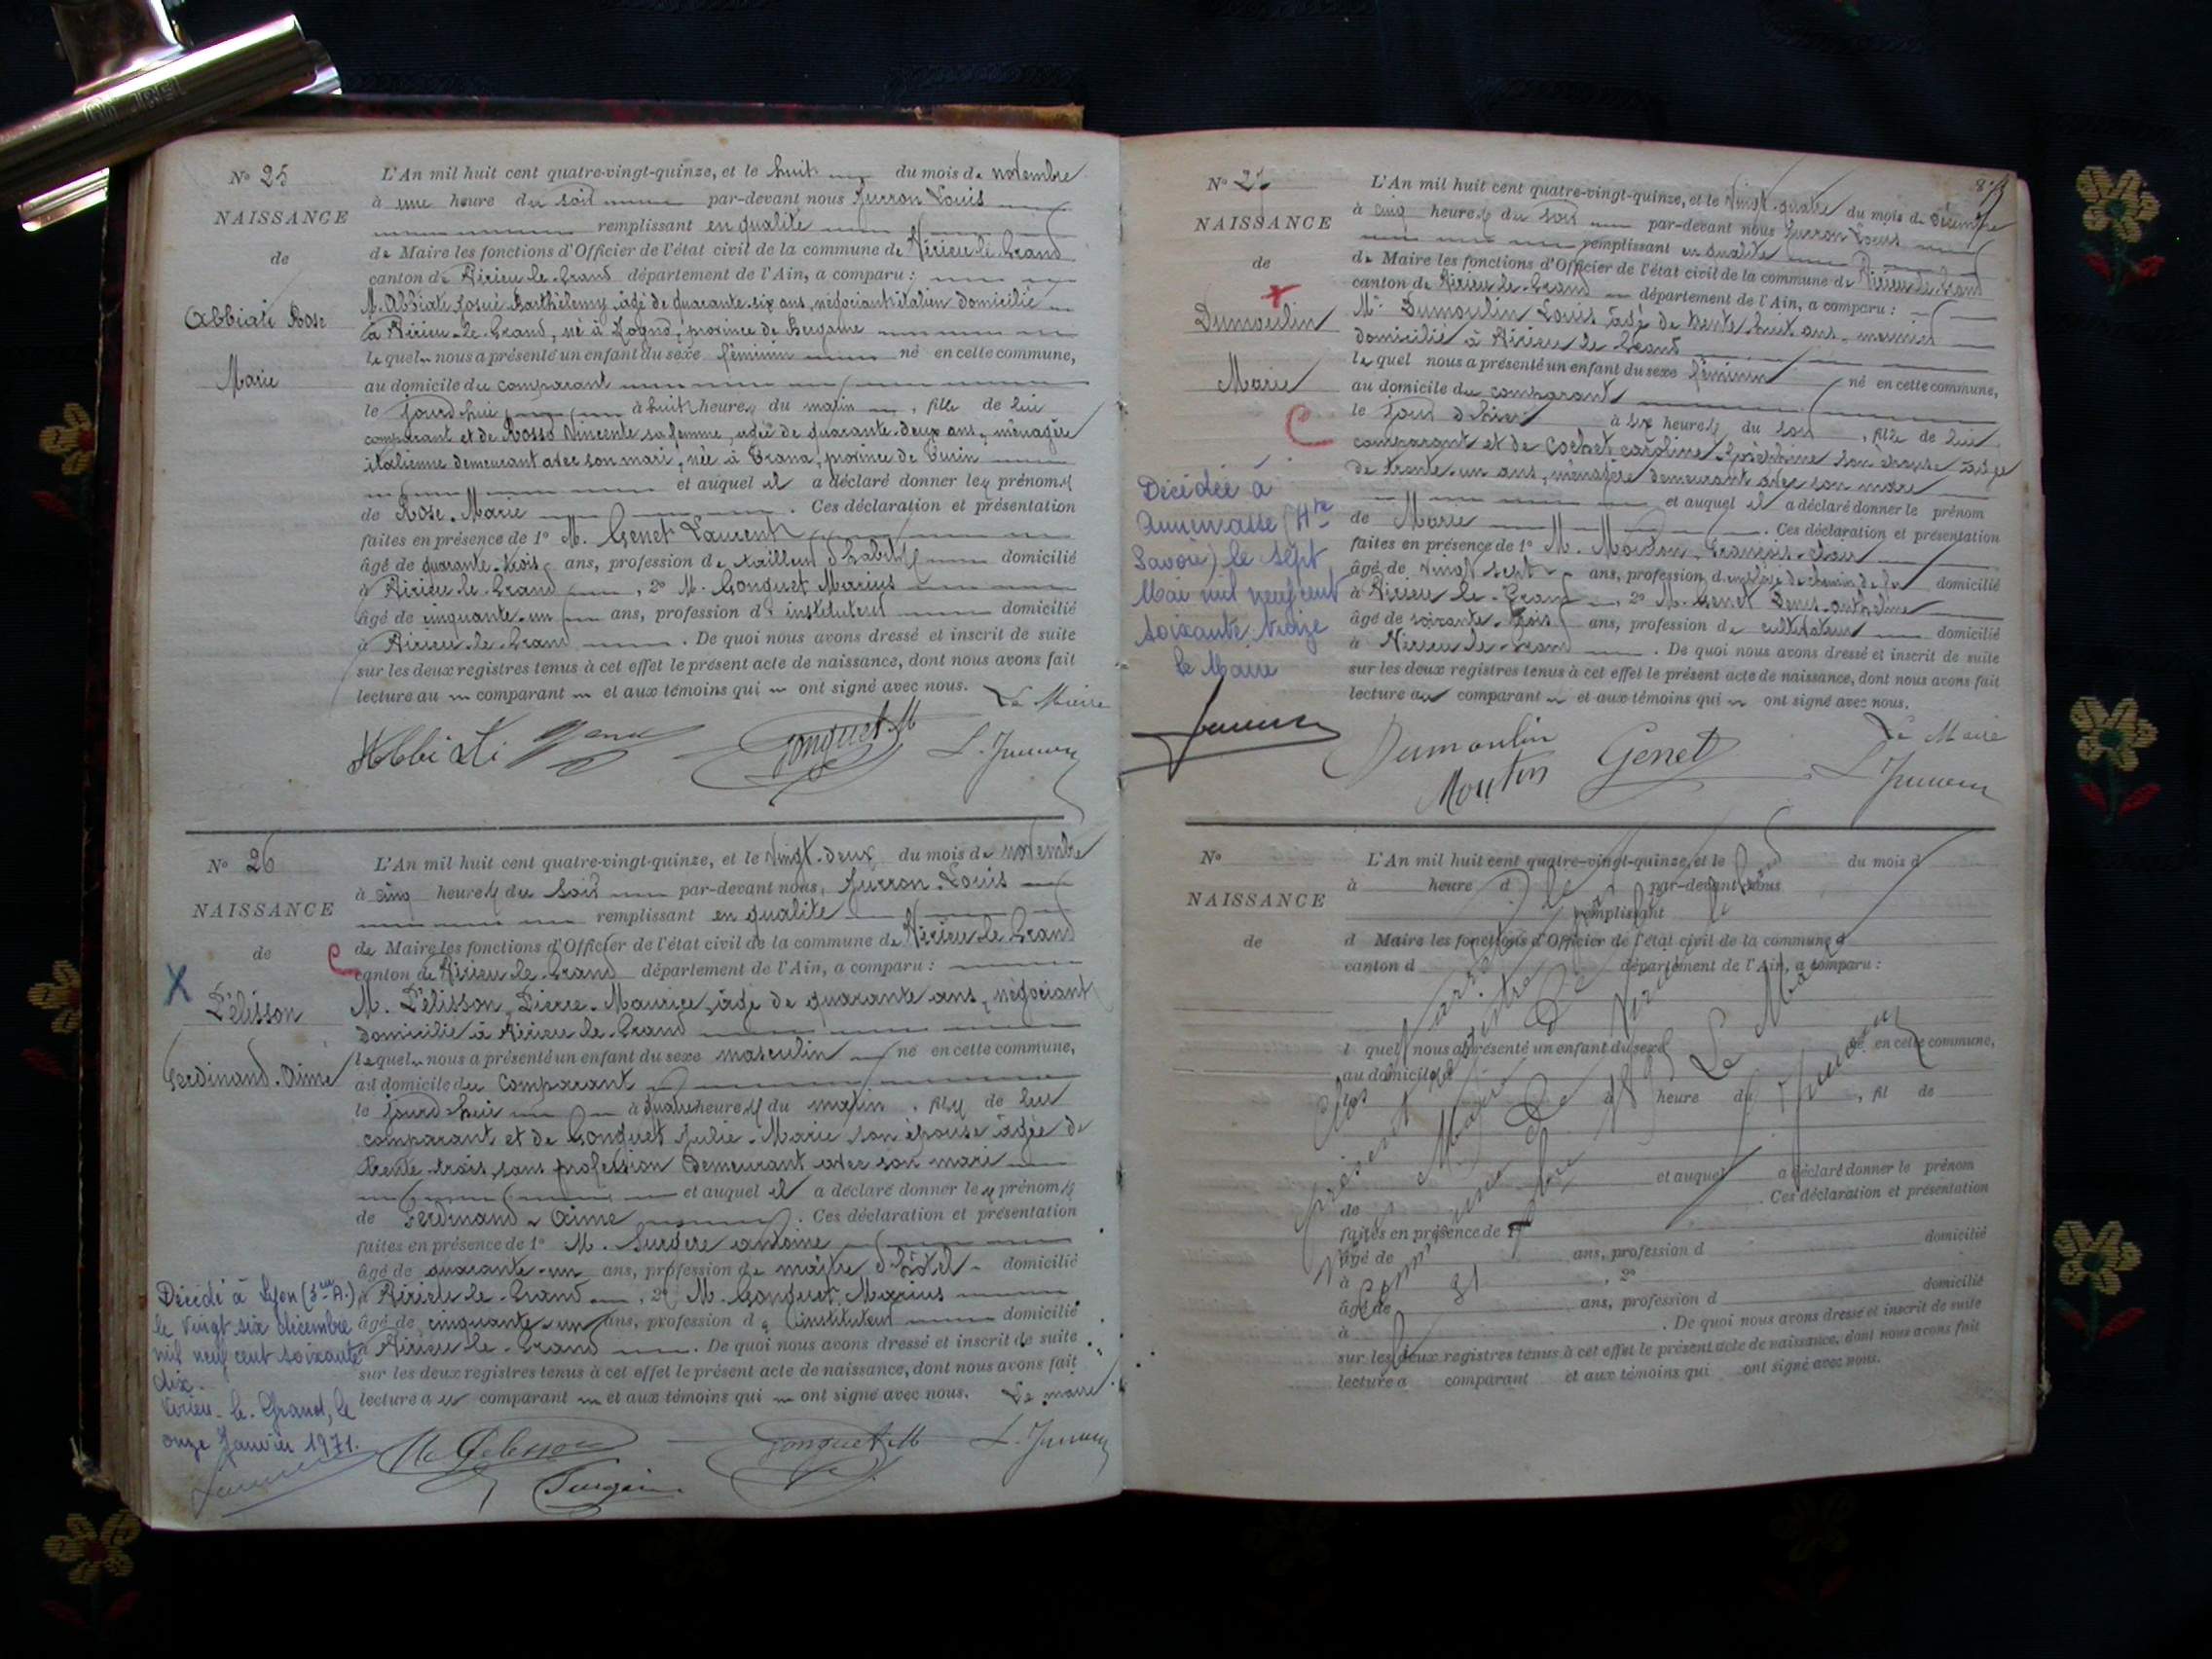 N° 25
NAISSANCE
de
Abbiati Rose
Marie
L'An mil huit cent quatre-vingt-quinze, et le huit du mois de novembre
à une heure du soir par-devant nous Jurron Louis
remplissant en qualité
de Maire les fonctions d'Officier de l'état civil de la commune de Virieu-le-Grand
canton de Virieu-le-Grand département de l'Ain, a comparu :
M. Abbiati Josué Barthélemy, âgé de quarante-six ans, négociant italien domicilié
à Virieu-le-Grand, né à Zogno, province de Bergame
lequel nous a présenté un enfant du sexe féminin né en cette commune,
au domicile du comparant
le jourd'hui à huit heures du matin, fille de lui
comparant et de Rosso Vincente sa femme, âgée de quarante-deux ans, ménagère
italienne demeurant avec son mari, née à Trana, province de Turin
et auquel il a déclaré donner les prénoms
de Rose-Marie. Ces déclaration et présentation
faites en présence de 1° M. Genet Laurent
âgé de quarante-trois ans, profession de tailleur d'habits domicilié
à Virieu-le-Grand, 2° M. Gonguet Marius
âgé de cinquante-un ans, profession d'instituteur domicilié
à Virieu-le-Grand. De quoi nous avons dressé et inscrit de suite
sur les deux registres tenus à cet effet le présent acte de naissance, dont nous avons fait
lecture au comparant et aux témoins qui ont signé avec nous. Le Maire
Abbiati Genet Gonguet M L. Jurron
N° 26
NAISSANCE
de
X Pélisson
Ferdinand-Aimé
L'An mil huit cent quatre-vingt-quinze, et le vingt-deux du mois de novembre
à cinq heures du soir par-devant nous, Jurron Louis
remplissant en qualité
de Maire les fonctions d'Officier de l'état civil de la commune de Virieu-le-Grand
canton de Virieu-le-Grand département de l'Ain, a comparu :
M. Pélisson, Pierre-Maurice, âgé de quarante ans, négociant
domicilié à Virieu-le-Grand
lequel nous a présenté un enfant du sexe masculin né en cette commune,
au domicile du comparant
le jourd'hui à quatre heures du matin, fils de lui
comparant et de Gonguet Julie-Marie son épouse âgée de
trente-trois, sans profession demeurant avec son mari
et auquel il a déclaré donner les prénoms
de Ferdinand-Aimé. Ces déclaration et présentation
faites en présence de 1° M. Surgère antoine
âgé de quarante-un ans, profession de maître d'hôtel domicilié
à Virieu-le-Grand, 2° M. Gonguet Marius
âgé de cinquante-un ans, profession d'instituteur domicilié
à Virieu-le-Grand. De quoi nous avons dressé et inscrit de suite
sur les deux registres tenus à cet effet le présent acte de naissance, dont nous avons fait
lecture au comparant et aux témoins qui ont signé avec nous. Le maire
Décédé à Lyon (3me A.)
le vingt six décembre
mil neuf cent soixante
dix.
Virieu-le-Grand, le
onze Janvier 1971.
M Pelisson Gonguet M L. Jurron
Surgère
N° 27
NAISSANCE
de
Dumoulin
Marie
C
87
L'An mil huit cent quatre-vingt-quinze, et le vingt-quatre du mois de décembre
à cinq heures du soir par-devant nous Jurron Louis
remplissant en qualité
de Maire les fonctions d'Officier de l'état civil de la commune de Virieu-le-Grand
canton de Virieu-le-Grand département de l'Ain, a comparu :
Mr Dumoulin Louis, âgé de trente-huit ans,
domicilié à Virieu-le-Grand
lequel nous a présenté un enfant du sexe féminin né en cette commune,
au domicile du comparant
le jour d'hier à six heures du soir, fille de lui
comparant et de Cochet caroline-Joséphine son épouse âgée
de trente-un ans, ménagère demeurant avec son mari
et auquel il a déclaré donner le prénom
de Marie. Ces déclaration et présentation
faites en présence de 1° M. Mouton François-
âgé de vingt-sept ans, profession d'employé de chemin de fer domicilié
à Virieu-le-Grand, 2° M. Genet Denis-anthelme
âgé de soixante-trois ans, profession de cultivateur domicilié
à Virieu-le-Grand. De quoi nous avons dressé et inscrit de suite
sur les deux registres tenus à cet effet le présent acte de naissance, dont nous avons fait
lecture au comparant et aux témoins qui ont signé avec nous.
Décédée à
Annemasse (Hte
Savoie) le sept
Mai mil neuf cent
soixante treize
le Maire
Le Maire
Dumoulin Genet
Mouton L. Jurron
N°
NAISSANCE
de
L'An mil huit cent quatre-vingt-quinze, et le du mois d
à heure d par-devant nous
remplissant
d Maire les fonctions d'Officier de l'état civil de la commune d
canton d département de l'Ain, a comparu :
l quel nous a présenté un enfant du sexe né en cette commune,
au domicile d
le à heure du , fil de
et auquel a déclaré donner le prénom
de . Ces déclaration et présentation
faites en présence de 1°
âgé de ans, profession d domicilié
à , 2°
âgé de ans, profession d domicilié
à . De quoi nous avons dressé et inscrit de suite
sur les deux registres tenus à cet effet le présent acte de naissance, dont nous avons fait
lecture a comparant et aux témoins qui ont signé avec nous.
Clos et arrêté le
présent registre par
Maire de la
commune de Virieu le Grand
le 31 Xbre 1895
Le Maire
L Jurron